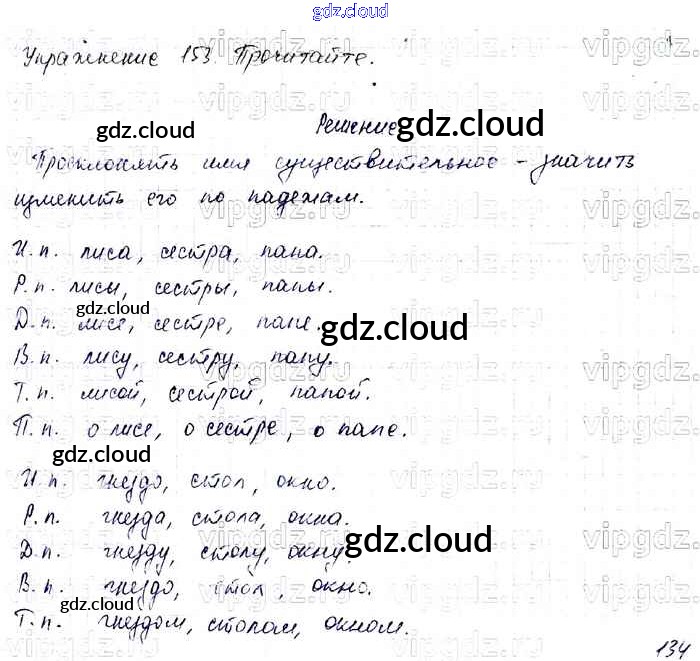 gdz.cloud
Упражнение 153. Прочитайте.
Решение
Просклонять имя существительное - значить
изменить его по падежам.
И.п. лиса, сестра, папа.
Р.п. лисы, сестры, папы.
Д.п. лисе, сестре, папе.
В.п. лису, сестру, папу.
Т.п. лисой, сестрой, папой.
П.п. о лисе, о сестре, о папе.
И.п. гнездо, стол, окно.
Р.п. гнезда, стола, окна.
Д.п. гнезду, столу, окну.
В.п. гнездо, стол, окно.
Т.п. гнездом, столом, окном.
134